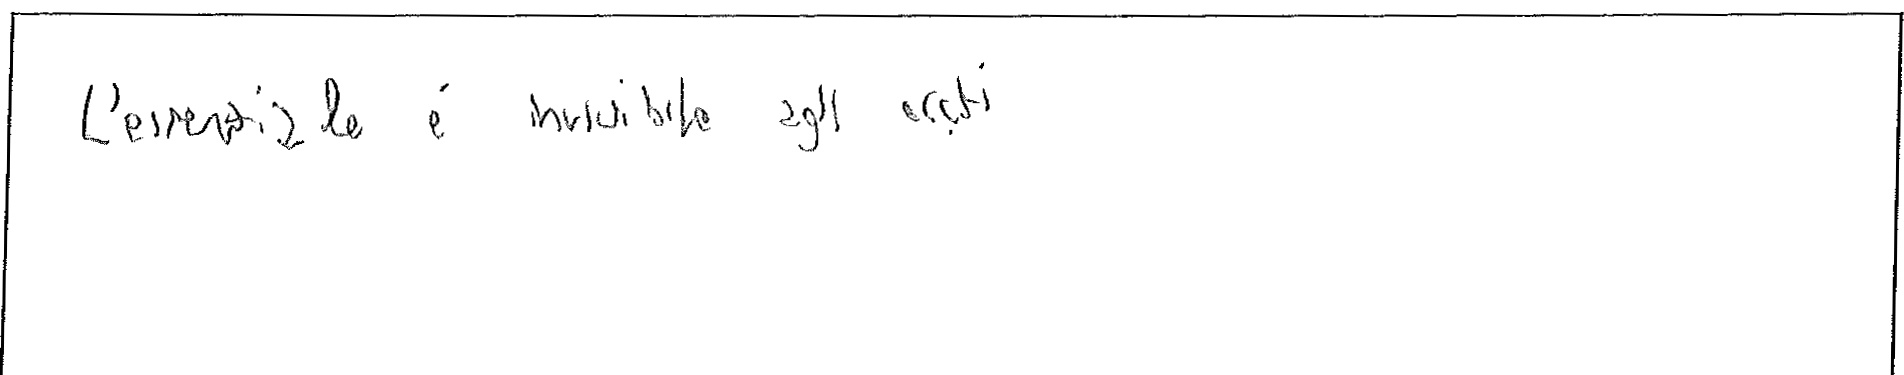 L'essenziale é invisibile agli